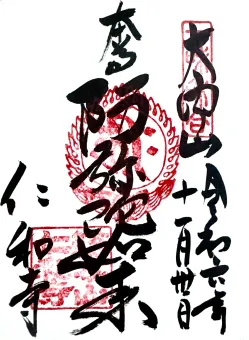 大内山
令和六年
十一月廿日
奉
阿弥陀如来
仁和寺